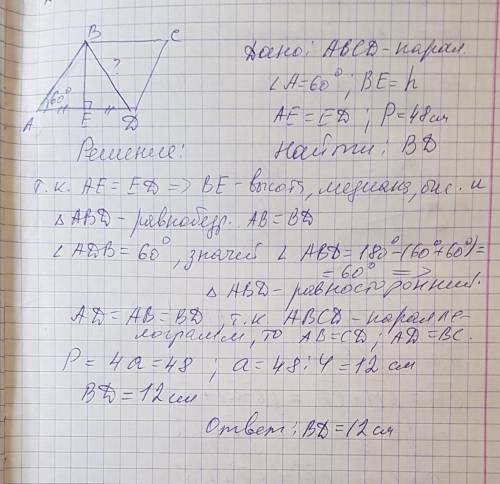 B
C
?
60°
A
E
D
Дано: ABCD-парал.
∠A=60°; BE=h
AE=ED; P=48см
Найти: BD
Решение:
т.к. AE=ED => BE-высота, медиана, бис. и
△ABD-равнобедр. AB=BD
∠ADB=60°, значит ∠ABD=180°-(60°+60°)=
=60° =>
△ABD-равносторонний.
AD=AB=BD т.к. ABCD-паралле-
лограмм, то AB=CD; AD=BC.
P=4a=48; a=48:4=12 см
BD=12см
Ответ: BD=12см